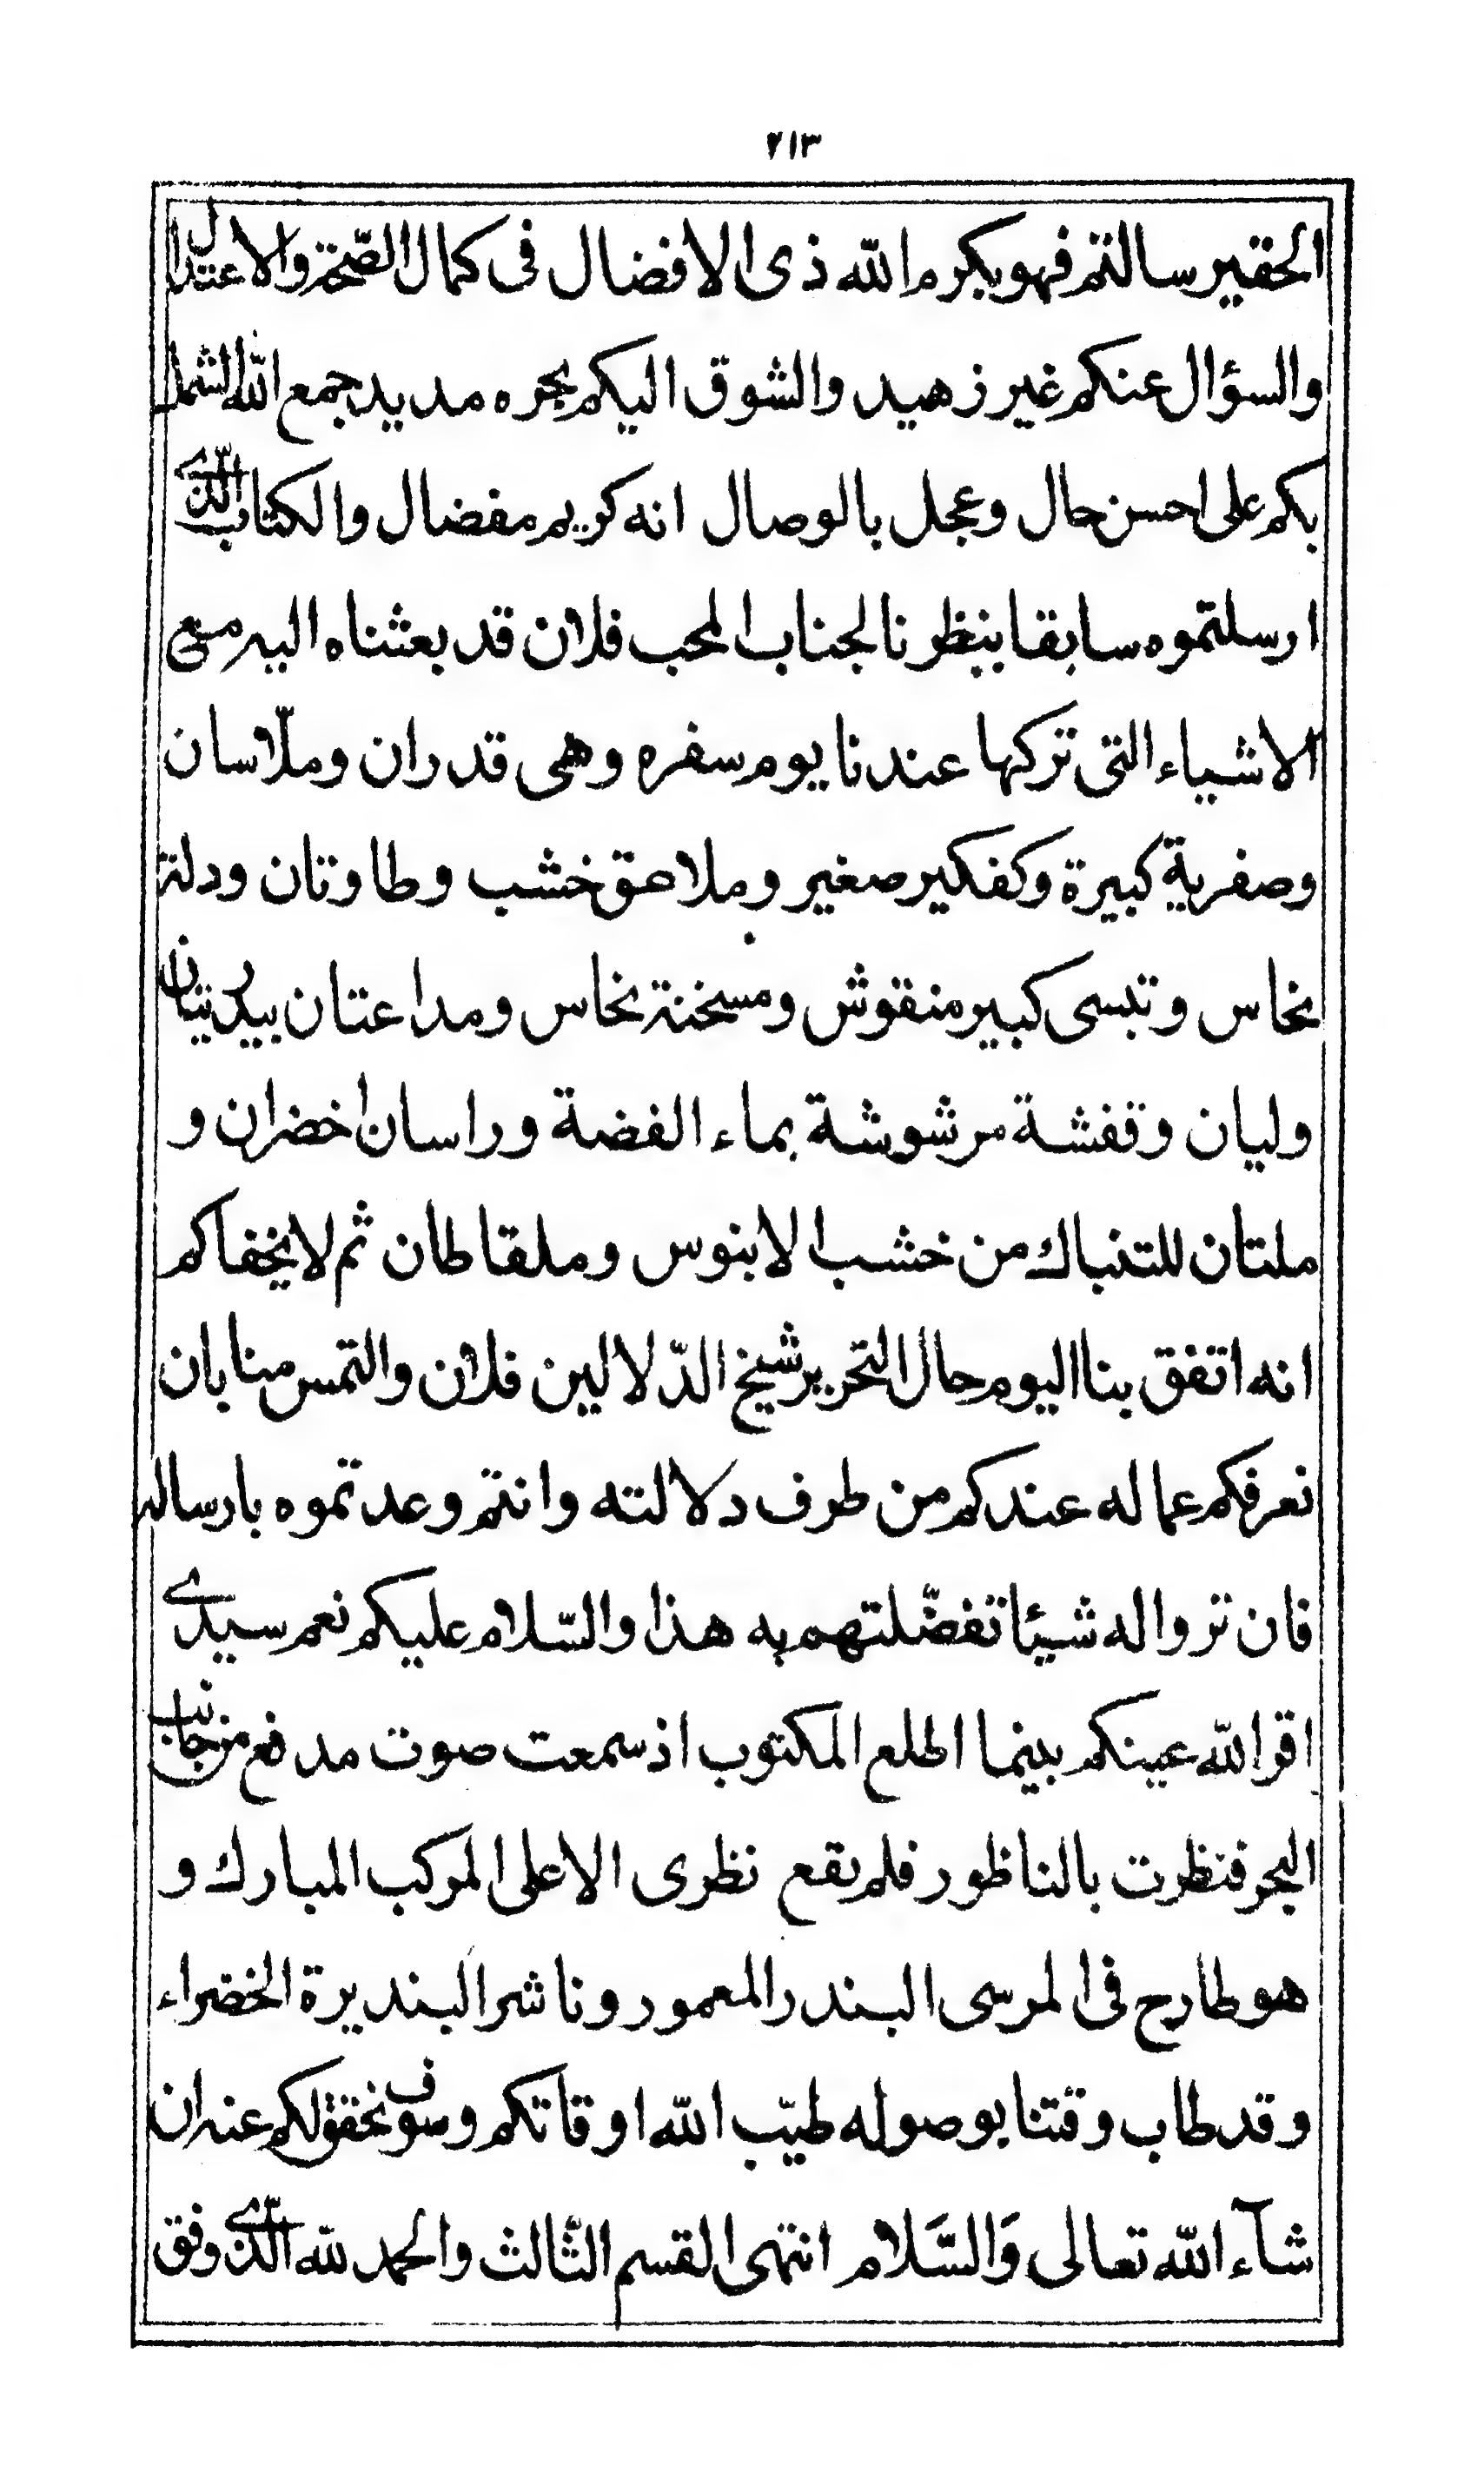 ٢١٣
الحقير سالتم فهو بكرم الله ذى الافضال فى كمال الصّحة والاعتدال
والسؤال عنكم غير زهيد والشوق اليكم بحره مديد جمع الله الشمل
بكم على احسن حال وعجل بالوصال انه كريم مفضال والكتاب الّذى
ارسلتموه سابقا بنظرنا لجناب المحب فلان قد بعثناه اليه مع
الاشياء التى تركها عندنا يوم سفره وهى قدران وملّاسان
وصفرية كبيرة وكفكير صغير وملاعق خشب وطاوتان ودلة
نحاس وتبسى كبير منقوش ومسخنة نحاس ومداعتان بيدريتان
وليان وقفشة مرشوشة بماء الفضة وراسان اخضران و
ملتان للتنباك من خشب الابنوس وملقاطان ثم لا يخفاكم
انه اتفق بنا اليوم حال التحرير شيخ الدّلالين فلان والتمس منا بان
نعرفكم عما له عندكم من طرف دلالته وانتم وعدتموه بارساله
فان تروا له شيئا تفضّلتهم به هذا والسّلام عليكم نعم سيدى
اقر الله عينكم بينما اطلع المكتوب اذ سمعت صوت مدفع من جانب
البحر فنظرت بالناظور فلم يقع نظرى الا على المركب المبارك و
هو طارح فى المرسى البندر المعمور وناشر البنديرة الخضراء
وقد طاب وقتنا بوصوله طيّب الله اوقاتكم وسوف نحقق لكم عنه ان
شآء الله تعالى وَالسَّلام انتهى القسم الثّالث والحمد لله الّذى وفق